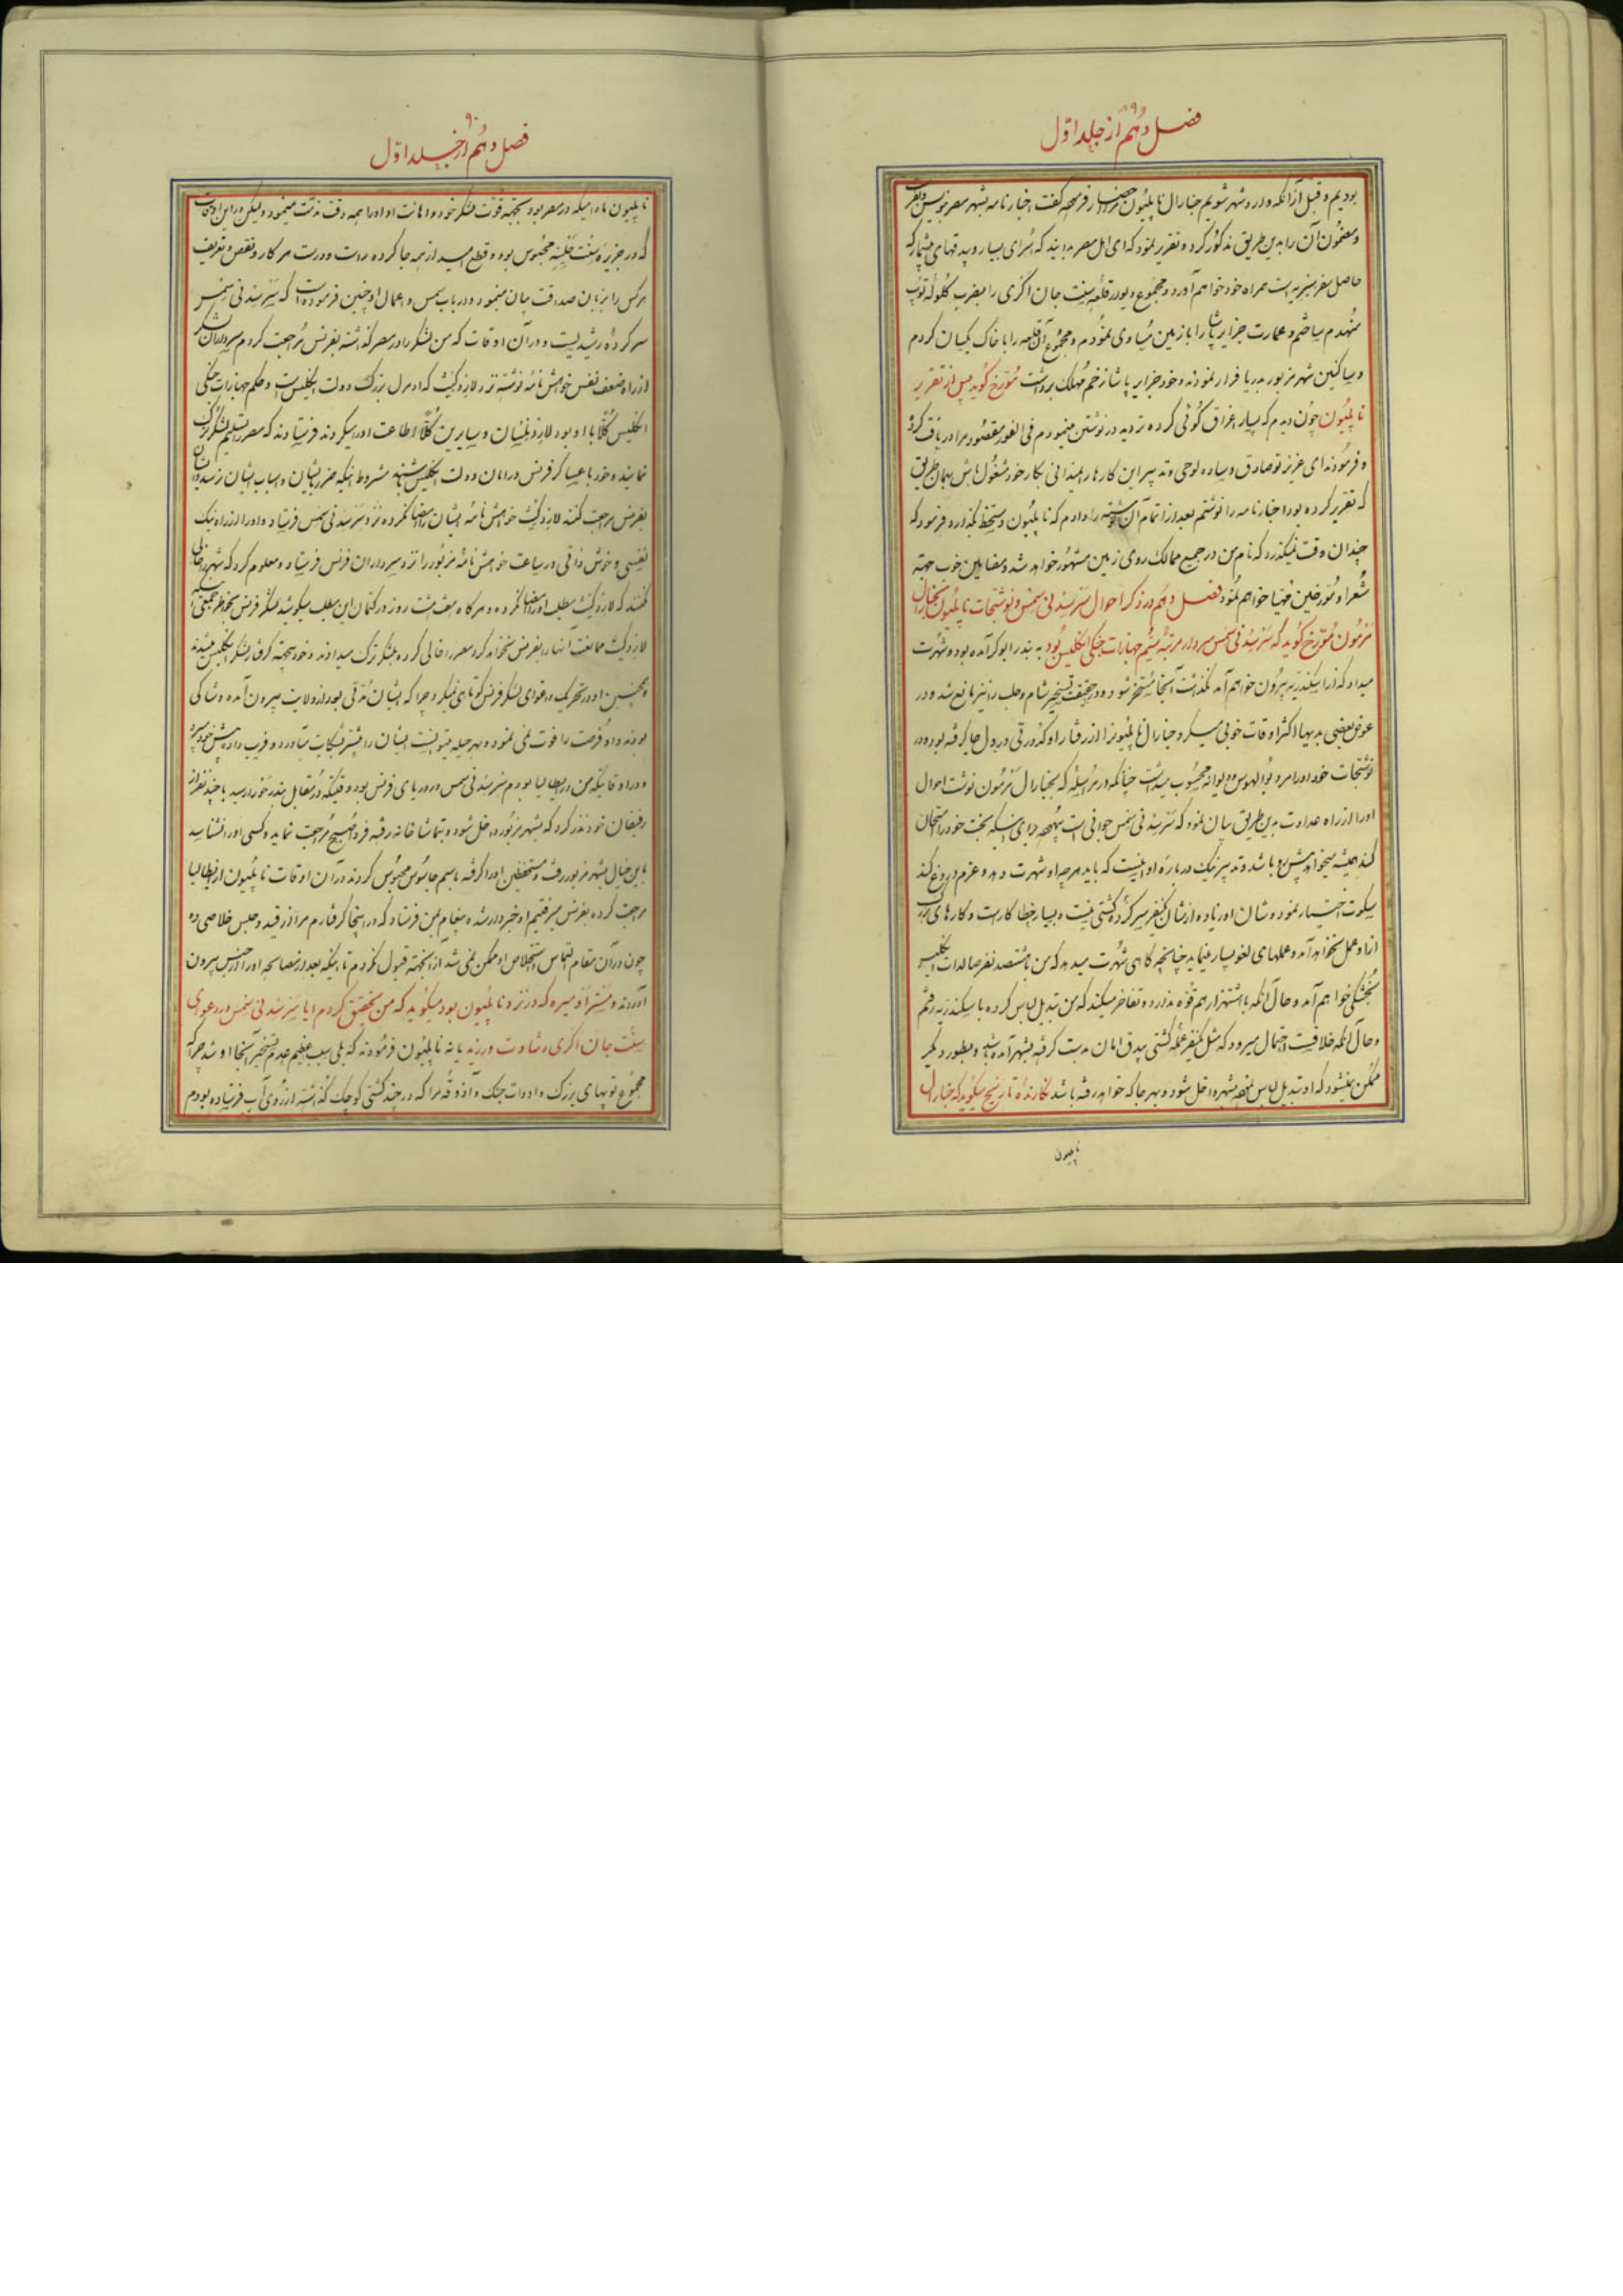 ۸۹
فصل دهم از جلد اول
بودیم و قبل از آنکه وارد شهر شویم جنارال ناپلیون فرمود گفت اخبار نامه بشهر مصر بنویس
و مضمون آن را بدین طریق مذکور کرده تقریر نمود که ای اهل مصر بدانید که اسرای بسیار و بیدقهای بیشمار که
حاصل سفر سیریه است همراه خود خواهم آورد و مجموع دیوار قلعه سنت جان اکری را بضرب گلوله توپ
منهدم ساختم و عمارت جزایر پاشا را با زمین مساوی نمودم و مجموع آن قلعه را با خاک یکسان کردم
و ساکنین شهر مزبور بدریا فرار نمودند و خود جزایر پاشا زخم مهلک برداشت مورخ گوید پس از تقریر
ناپلیون چون دیدم که بسیار اغراق گوئی کرده تردید در نوشتن مینمودم فی الفور مقصود مرا دریافت کرد
و فرمودند ای عزیز تو صادق و ساده لوحی و تدبیر این کارها را نمیدانی بکار خود مشغول باش بهمان طریق
که تقریر کرده بود اخبار نامه را نوشتم بعد از اتمام آن نوشته را دادم که ناپلیون دستخط گذارد و فرمود که
چندان وقت نمیگذرد که نام من در جمیع ممالک روی زمین مشهور خواهد شد و مضامین خوب جهة
شعرا و مورخین مهیا خواهم نمود فصل دهم در ذکر احوال سرسیدنی سمس و نوشتجات ناپلیون بجنارال
مزمون مورخ گوید که سرسیدنی سمس سردار مرتبه سیم جهازات جنگی انگلیس بود به بندر ابوکر آمده بود و شهرت
میداد که از اسکندریه بیرون خواهم آمد نگذاشت آنجا مسخر شود و در حقیقت تسخیر شام و حلب را نیز مانع شد و در
عوض بعضی بدیها اکثر اوقات خوبی میکرد و جنارال ناپلیون را از رفتار او کدورتی در دل جا گرفته بود و در
نوشتجات خود او را مرد بوالهوس و دیوانه محسوب میداشت چنانکه در مراسله که بجنارال مزمون نوشت احوال
او را از راه عداوت بدین طریق بیان نمود که سرسیدنی سمس جوانی است بیهوده برای اینکه بخت خود را امتحان
کند همیشه میخواهد پیش رو باشد و تدبیر نیک درباره او اینست که باید هر چه او شهرت دهد و عزم دروغ کند
سکوت اختیار نموده و شان او زیاده از شان یکنفر سرکرده کشتی نیست و بسیار خطا کار است و کارهای
از او عمل نخواهد آمد و عملهای لغو بسیار مینماید چنانچه گاهی شهرت میدهد که من با ششصد نفر صالدات انگلیس
بخشکی خواهم آمد و حال آنکه با اشتهار هم قوه ندارد و تفاخر میکند که من تبدیل لباس کرده باسکندریه رفتم
و حال آنکه خلاف است احتمال میرود که مثل یکنفر عمله کشتی بیدق امان بدست گرفته بشهر آمده باشد و بطور دیگر
ممکن نمیشود که او تبدیل لباس نموده بشهر داخل شود و بهر جا که خواهد رفته باشد نگارنده تاریخ میگوید که جنارال
ناپلیون
۹۰
فصل دهم از جلد اول
ناپلیون مادامیکه در مصر بود بجهة قوت لشکر خود و اهانت او او را همه وقت مذمت مینمود و لیکن در این اوقات
که در جزیره سنت حلینه محبوس بود و قطع امید از همه جا کرده راست و درست هر کار و نقص و تعریف
هرکس را بزبان صداقت بیان مینمود و در باب سمس و اعمال او چنین فرموده است که سرسیدنی سمس
سرکرده رشیدیست و در آن اوقات که من لشکر را در مصر گذاشته بفرنس مراجعت کردم سرداران لشکر
از راه ضعف نفس خواهش نامه نوشته نزد لارد کیث که ادمرل بزرگ دولت انگلیس است و حکم جهازات جنگی
انگلیس کلا با او بود لارد نلسان و سایرین کلا اطاعت او را میکردند فرستادند که مصر را تسلیم لشکر ترک
نمایند و خود با عساکر فرنس در امان دولت انگلیس باشند مشروط اینکه ضرر بایشان و اسباب ایشان نرسد و
بفرنس مراجعت کنند لارد کیث خواهش نامه ایشان را امضا نکرده نزد سرسیدنی سمس فرستاد و او را از راه نیک
نفسی و خوش ذاتی در ساعت خواهش نامه مزبور را نزد سرداران فرنس فرستاد و معلوم کرد که شهر را خالی
نکنند که لارد کیث مطلب او را امضا نکرده و هرگاه هفت هشت روز در کتمان این مطلب میکوشید لشکر فرنس بخواطر جمعی
لارد کیث ممانعت آنها را بفرنس نخواهد کرد مصر را خالی کرده بلشکر ترک میدادند و خود بیجهة گرفتار لشکر انگلیس میشدند
و همچنین او در تحریک و اغوای لشکر فرنس کوتاهی نمیکرد چرا که ایشان مدتی بود از ولایت بیرون آمده و شاکی
بودند و او فرصت را فوت نمی نمود و بهر حیله میتوانست ایشان را بیشتر بشکایت میآورد و فریب داده پیش خود
و در اوقاتیکه من در ایطالیا بودم سرسیدنی سمس در دریای فرنس بود وقتیکه در مقابل بندر رسید با چند نفر از
رفیقان خود نذر کرد که بشهر مزبور داخل شود و بتماشا خانه رفته فردا صبح مراجعت نماید و کسی او را نشناسد
باین خیال بشهر مزبور رفت و مستحفظین او را گرفته باسم جاسوس محبوس کردند در آن اوقات ناپلیون از ایطالیا
مراجعت کرده بفرنس میرفتیم او خبردار شده پیغام بمن فرستاد که در اینجا گرفتارم مرا از قید و حبس خلاصی ده
چون در آن مقام التماس استخلاص او ممکن نمی شد از اینجهة قبول نکردم تا اینکه بعد از مصالحه او را از حبس بیرون
آوردند و مستر آدمیره که در نزد ناپلیون بود میگوید که من تحقیق کردم ایا سرسیدنی سمس در دعوای
سنت جان اکری رشادت ورزید یا نه ناپلیون فرمودند که بلی سبب عظیم عدم تسخیر آنجا او شد چرا که
مجموع توپهای بزرگ و ادوات جنگ و آذوقه مرا که در چند کشتی کوچک گذاشته از روی آب فرستاده بودم